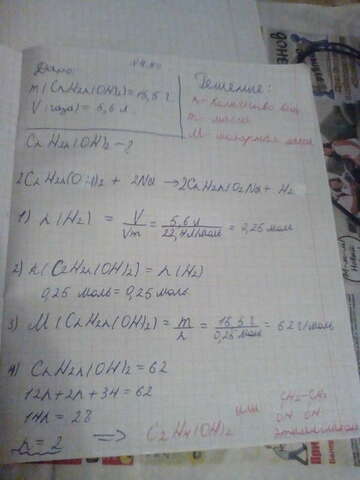 Дано:
m(CnH2n(OH)2)=15,5 г
V(газа)=5,6 л
CnH2n(OH)2-?
Решение:
n-количество вещ
m-масса
M-молярная масса
2CnH2n(OH)2 + 2Na →2CnH2nO2Na+H2
1) n(H2) = V/Vm = 5,6 л/22,4 л/моль = 0,25 моль
2) n(CnH2n(OH)2) = n(H2)
0,25 моль = 0,25 моль
3) M(CnH2n(OH)2) = m/n = 15,5 г/0,25 моль = 62 г/моль
4) CnH2n(OH)2 = 62
12n+2n+34=62
14n=28
n=2 ⇒ C2H4(OH)2 или CH2-CH2
OH OH
этиленгликоль